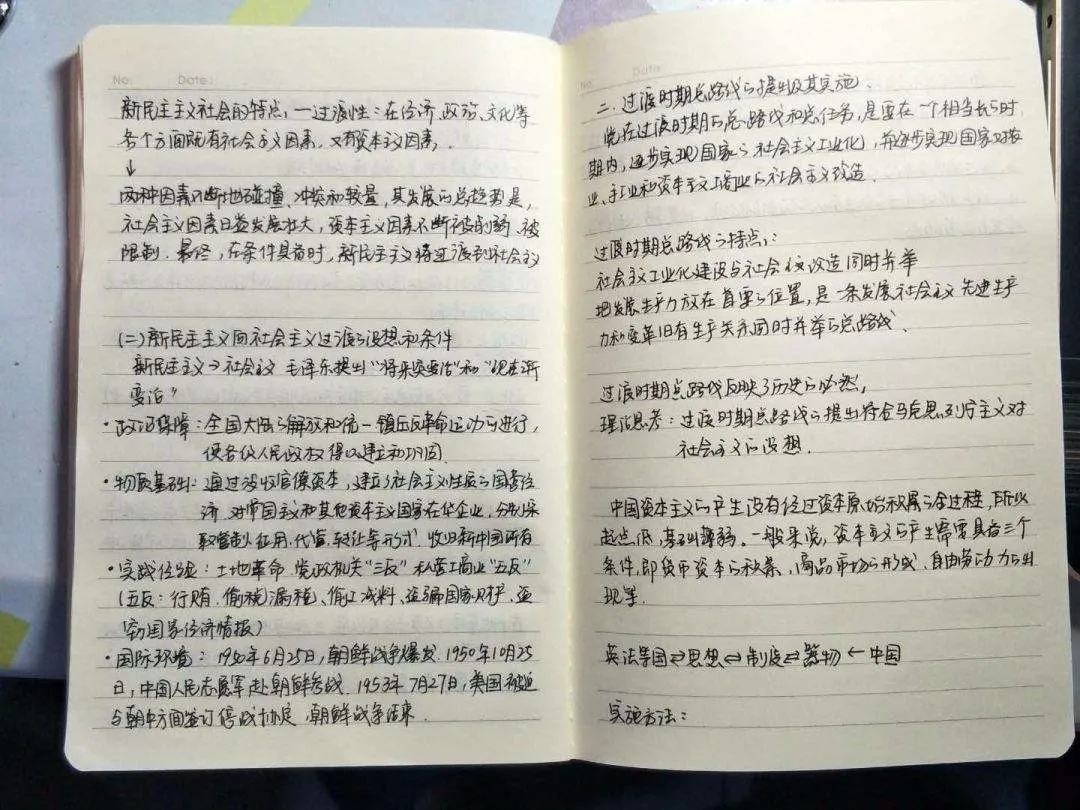 No.    Date:
新民主主义社会的特点,—过渡性:在经济、政治、文化等
各个方面既有社会主义因素,又有资本主义因素.
↓
两种因素不断地碰撞、冲突和较量,其发展的总趋势是,
社会主义因素日益发展壮大,资本主义因素不断被削弱、被
限制.最终,在条件具备时,新民主主义将过渡到社会主义
(二)新民主主义向社会主义过渡的设想和条件
新民主主义→社会主义 毛泽东提出“将来突变法”和“现在渐
变法”
·政治保障:全国大陆的解放和统一镇压反革命运动的进行,
使各级人民政权得以建立和巩固.
·物质基础:通过没收官僚资本,建立了社会主义性质的国营经
济.对帝国主义和其他资本主义国家在华企业,分别采
取管制、征用、代管、转让等形式.收归新中国所有
·实践经验:土地革命.党政机关“三反”私营工商业“五反”
(五反:行贿、偷税漏税、偷工减料、盗骗国家财产、盗
窃国家经济情报)
·国际环境:1950年6月25日,朝鲜战争爆发.1950年10月25
日,中国人民志愿军赴朝鲜参战.1953年7月27日,美国被迫
与朝中方面签订停战协定,朝鲜战争结束.
No.    Date
二、过渡时期总路线的提出及其实施.
党在过渡时期的总路线和总任务,是要在一个相当长的时
期内,逐步实现国家的社会主义工业化,并逐步实现国家对农
业、手工业和资本主义工商业的社会主义改造.
过渡时期总路线的特点:
社会主义工业化建设与社会主义改造同时并举
把发展生产力放在首要的位置,是一条发展社会主义先进生产
力和变革旧有生产关系同时并举的总路线.
过渡时期总路线反映了历史的必然,
理论思考:过渡时期总路线的提出符合马克思列宁主义对
社会主义的设想.
中国资本主义的产生没有经过资本原始积累的全过程,所以
起点低,基础薄弱。一般来说,资本主义的产生需要具备三个
条件,即货币资本的积累、商品市场的形成、自由劳动力的出
现等.
英法等国⇄思想⇔制度⇄器物←中国
实施方法: